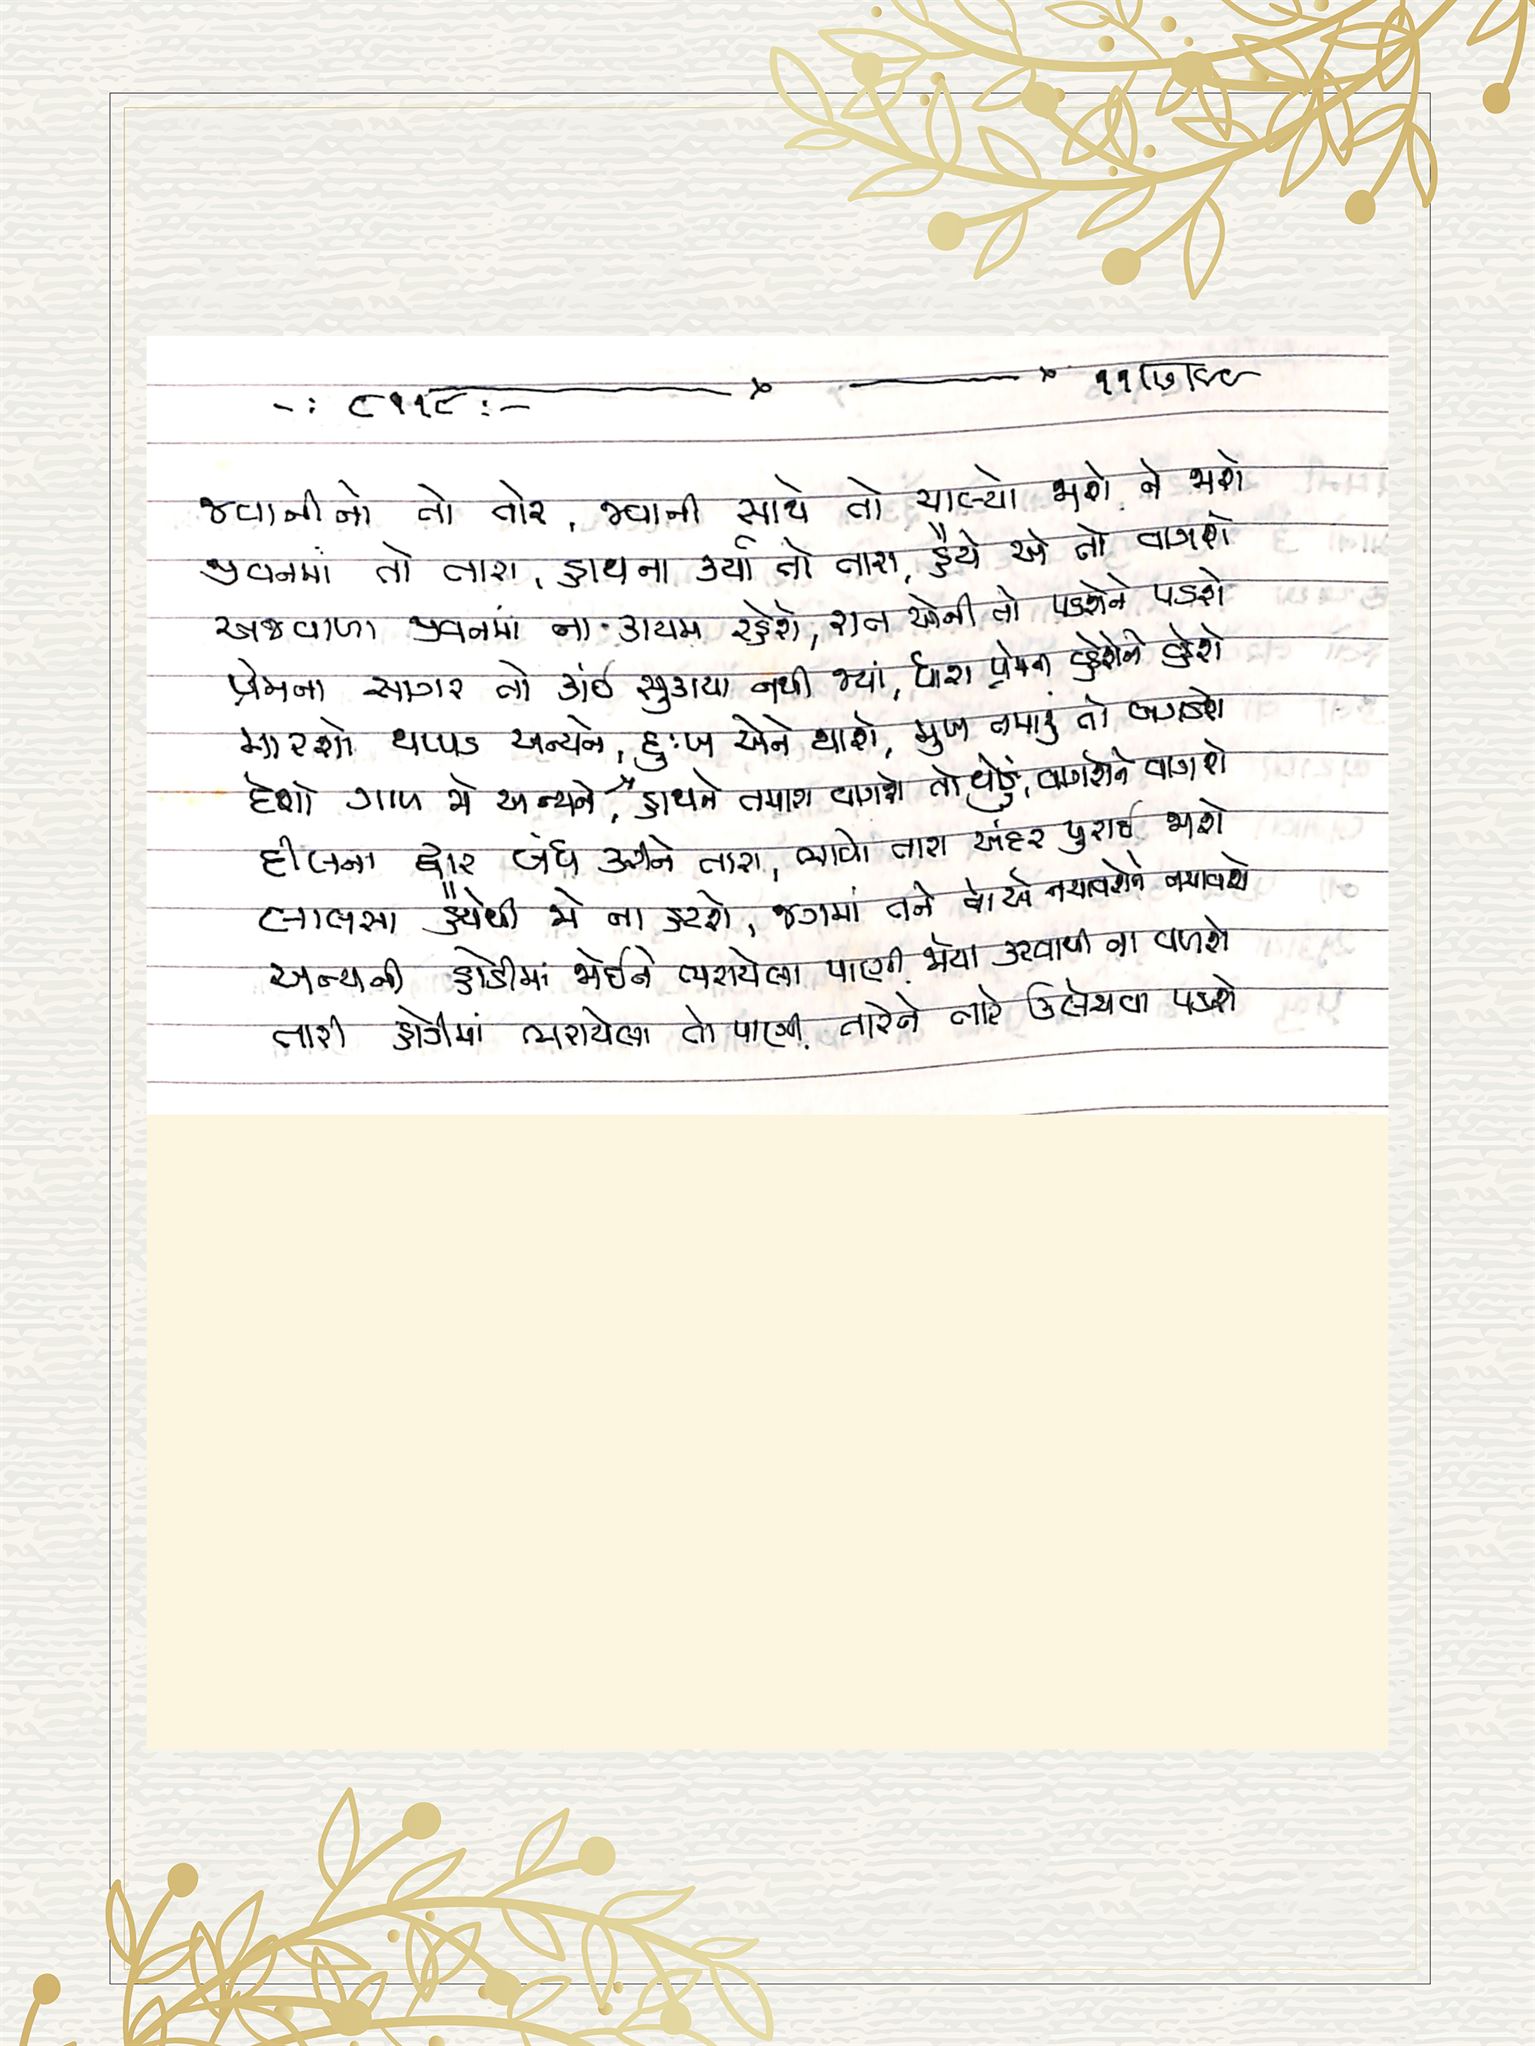 -: ૮૧૧૮ :- ૧૧|૭|૯૯
જવાનીનો તો તોર, જવાની સાથે તો ચાલ્યો જાશે ને જાશે
જીવનમાં તો તારા, હાથના કર્યા તો તારા, હૈયે એ તો વાગશે
અજવાળા જીવનમાં ના કાયમ રહેશે, રાત એની તો પડશેને પડશે
પ્રેમના સાગર તો કાંઈ સુકાયા નથી જ્યાં, ધારા પ્રેમના વ્હેશેને વ્હેશે
મારશો થપ્પડ અન્યને, દુઃખ એને થાશે, મુખ તમારું તો બગડશે
દેશો ગાળ જો અન્યને, હાથને તમારા વાગશે તો થોડું, વાગશેને વાગશે
દીલના દ્વાર બંધ કરીને તારા, ભાવો તારા અંદર પુરાઈ જાશે
લાલસા હૈયેથી જો ના હટશે, જગમાં તને તો એ નચાવશેને નચાવશે
અન્યની હોડીમાં જોઈને ભરાયેલા પાણી, જોયા કરવાથી ના વળશે
તારી હોડીમાં ભરાયેલા તો પાણી, તારેને તારે ઉલેચવા પડશે